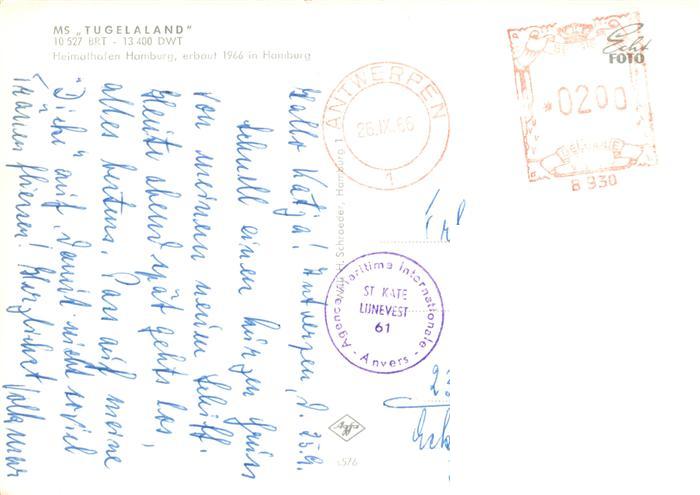 MS „TUGELALAND"
10 527 BRT - 13 400 DWT
Heimathafen Hamburg, erbaut 1966 in Hamburg
Hallo Katja! Antwerpen, d. 25.9.
Schnell einen kurzen Gruss
von meinem neuen Schiff.
Heute abend spät gehts los,
alles bestens. Pass auf meine
"Dicke" auf, damit nicht soviel
Tränen fliessen! Herzlichst Volkmar
H. Schroeder, Hamburg 1
ANTWERPEN
26.IX.66
1
0200
BELGIQUE
B 930
Echt
FOTO
Agence Maritime Internationale
ST KATE
LIJNEVEST
61
- Anvers -
Agfa